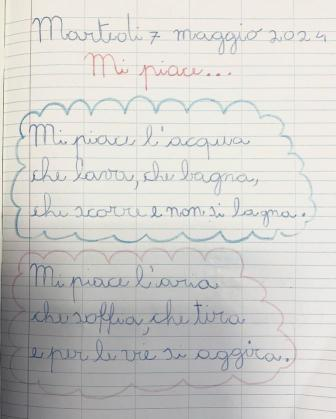 Martedì 7 maggio 2024
Mi piace...
Mi piace l'acqua
che lava, che bagna,
che scorre e non si lagna.
Mi piace l'aria
che soffia, che tira
e per le vie si aggira.